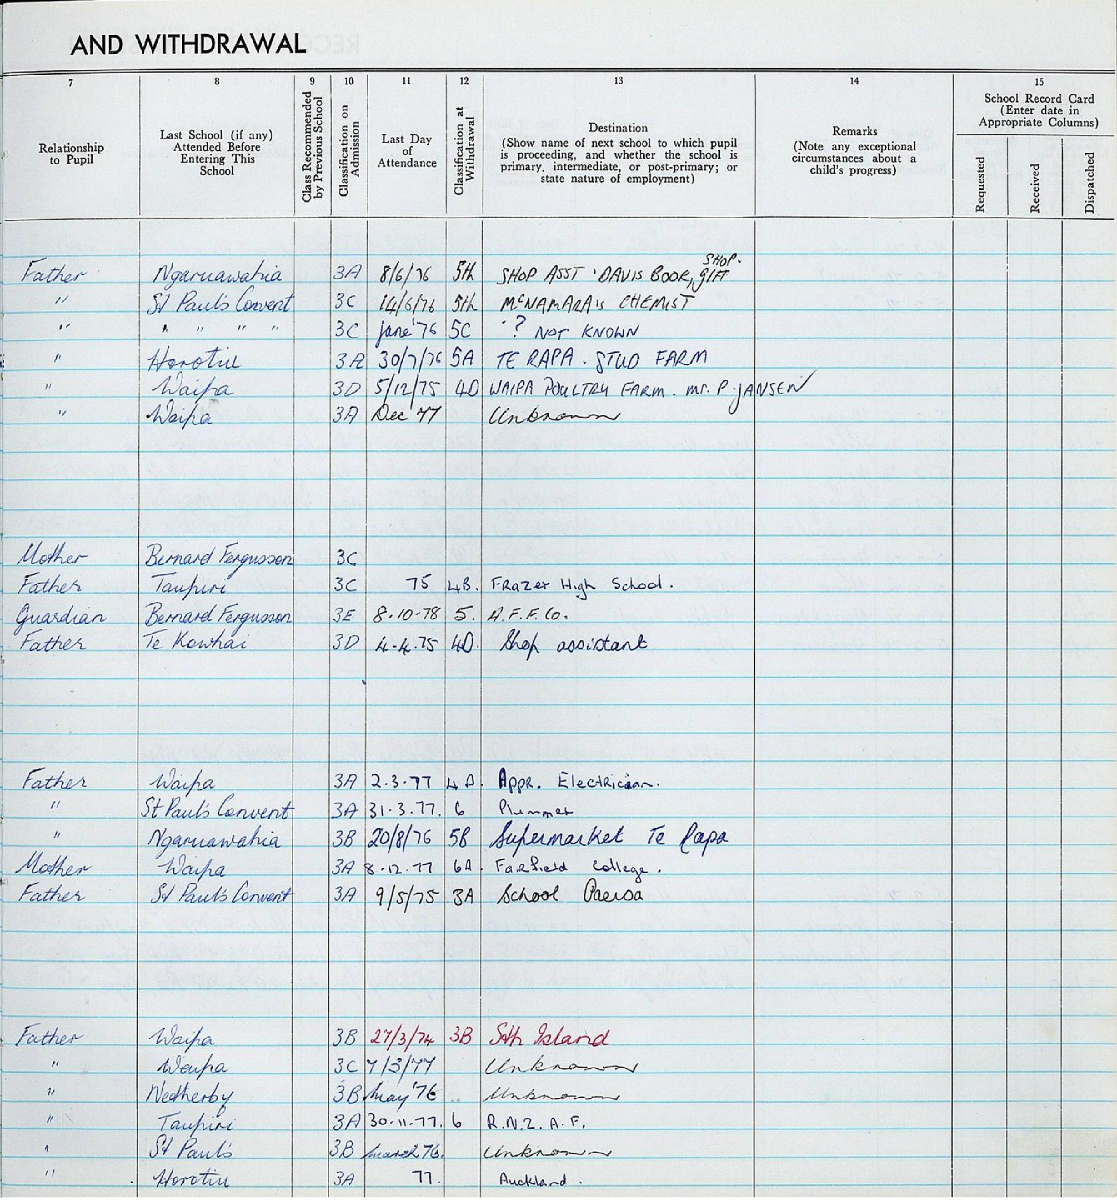 AND WITHDRAWAL
7 8 9 10 11 12 13 14 15
Relationship to Pupil
Last School (if any) Attended Before Entering This School
Class Recommended by Previous School
Classification on Admission
Last Day of Attendance
Classification at Withdrawal
Destination
(Show name of next school to which pupil is proceeding, and whether the school is primary, intermediate, or post-primary; or state nature of employment)
Remarks
(Note any exceptional circumstances about a child's progress)
School Record Card
(Enter date in Appropriate Columns)
Requested
Received
Dispatched
Father Ngaruawahia 3A 8/6/76 5th SHOP ASST DAVIS BOOK, GIFT SHOP.
" St Paul's Convent 3C 14/6/76 5th McNAMARA'S CHEMIST
" " " " " 3C June '76 5C ? NOT KNOWN
" Horotiu 3A 30/7/76 5A TE RAPA. STUD FARM
" Waipa 3D 5/12/75 4D WAIPA POULTRY FARM. Mr. P. JANSEN
" Waipa 3A Dec '77 Unknown
Mother Bernard Fergusson 3C
Father Taupiri 3C 75 4B. Frazer High School.
Guardian Bernard Fergusson 3E 8-10-78 5. A.F.F.Co.
Father Te Kowhai 3D 4.4.75 4D. Shop assistant
Father Waipa 3A 2.3.77 4A. Appr. Electrician.
" St Paul's Convent 3A 31.3.77. 6 Plummer
" Ngaruawahia 3B 20/8/76 5B Supermarket Te Rapa
Mother Waipa 3A 8.12.77 6A. Fairfield College.
Father St Paul's Convent 3A 9/5/75 3A School Paeroa
Father Waipa 3B 27/3/74 3B Sth Island
" Waipa 3C 7/3/77 Unknown
" Nedherby 3B May '76 .. Unknown
" Taupiri 3A 30.11.77. 6 R.N.Z.A.F.
" St Paul's 3B March 76. Unknown
" Horotiu 3A 77. Auckland.